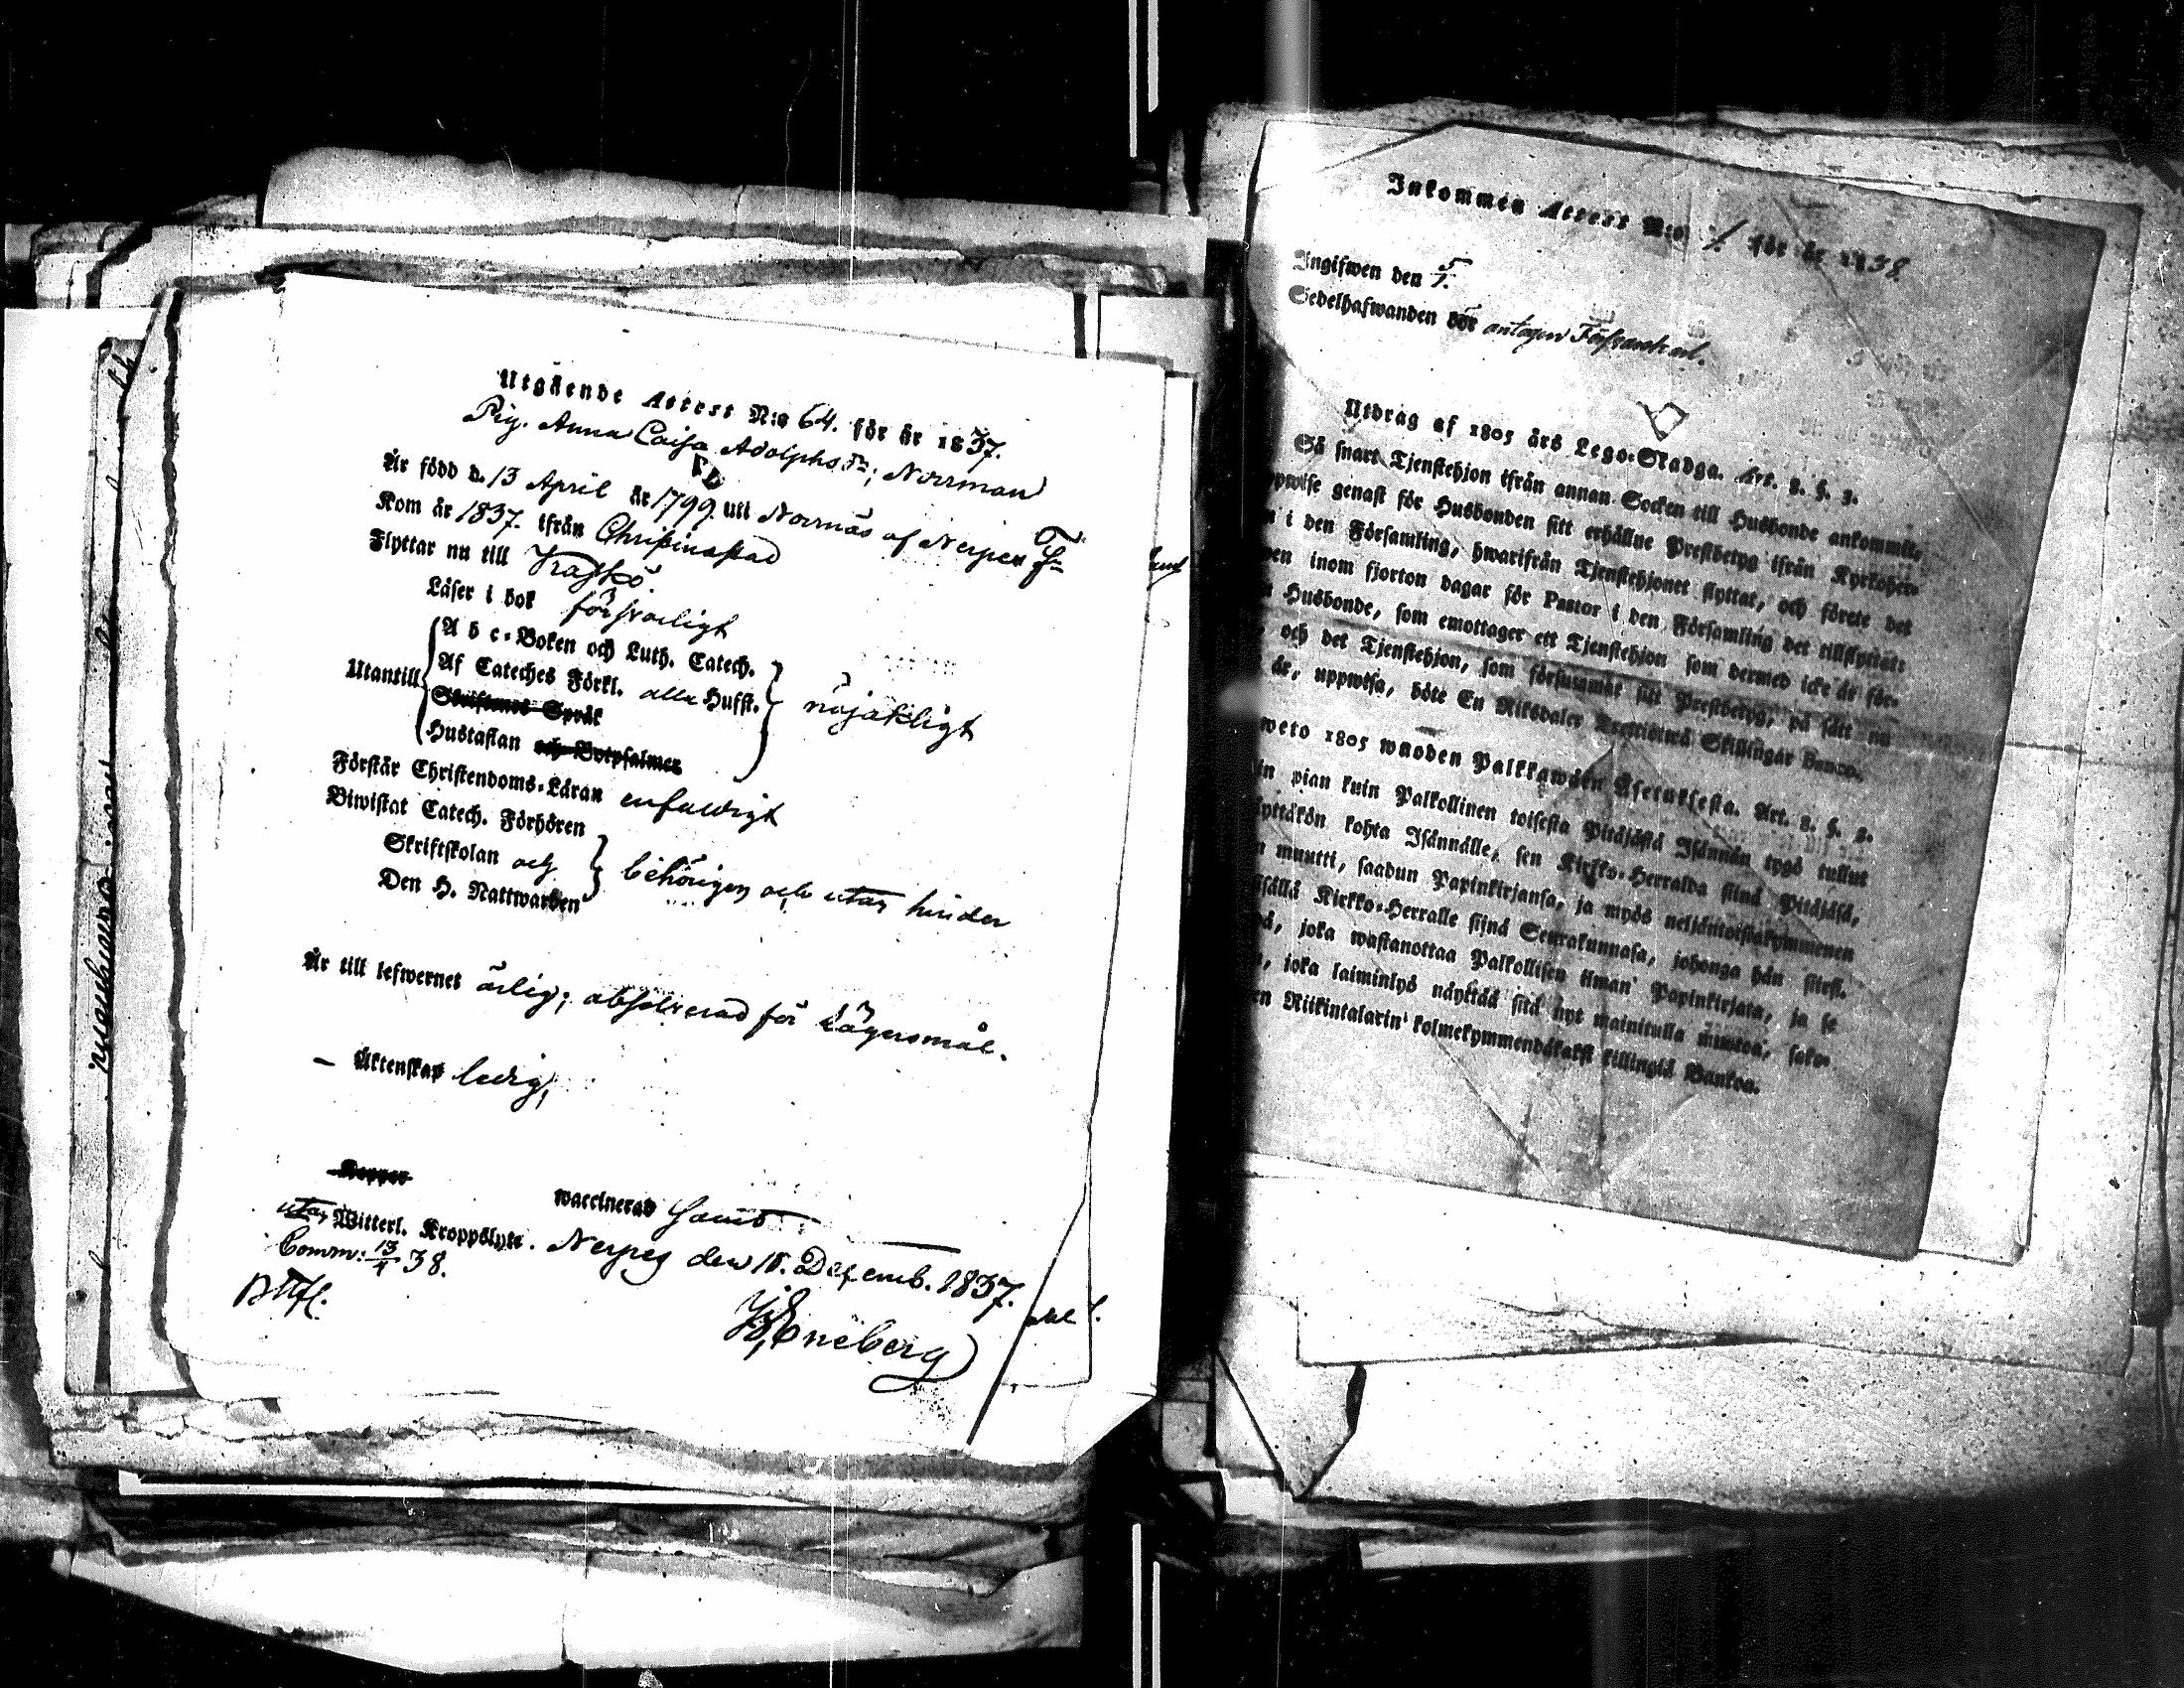 Utgående Attest N:o 64. för år 1837.
Pig. Anna Caisa Adolphs Dr; Norrman
Är född d. 13 April år 1799. uti Norrnäs af Nerpes
Kom år 1837. ifrån Christinastad
Flyttar nu till
Läser i bok försvarligt
Utantill
A b c-Boken och Luth. Catech.
Af Cateches Förkl. alla Hufst.
Skriftenes Språk
Hustaflan och Botpsalmer
nöjaktligt
Förstår Christendoms-Läran enfaldigt
Biwistat Catech. Förhören
Skriftskolan och
Den H. Nattwarden
behörigen och utan hinder
Är till lefwernet ärlig; absolverad för Lägersmål.
— Äktenskap ledig,
Koppor
waccinerad
utan Witterl. Kroppslyte. Nerpes den 18. Decemb. 1837.
Comm: 13/4 38.
Inkommen Attest N:o 1. för år 1838
Ingifwen den 5/1.
Sedelhafwanden bör antagen
Utdrag af 1805 års Lego-Stadga. Art. 2. §. 2.
Så snart Tjenstehjon ifrån annan Socken till Husbonde ankommit,
genast för Husbonden sitt erhållne Prestbetyg ifrån Kyrkoher-
i den Församling, hwarifrån Tjenstehjonet flyttat, och förete det
inom fjorton dagar för Pastor i den Församling det tillflyttat:
Husbonde, som emottager ett Tjenstehjon som dermed icke är för-
och det Tjenstehjon, som försummat sitt Prestbetyg, på sätt nu
är, uppwisa, böte En Riksdaler Trettiotwå Skillingar Banco.
1805 wuoden Palkkawäen Asetuksesta. Art. 2. §. 2.
pian kuin Palkollinen toisesta Pitäjästä Isännän tygö tullut
kohta Isännälle, sen Kirkko-Herralda siinä Pitäjäsä,
muutti, saadun Papinkirjansa, ja myös neljäntoistakymmenen
Kirkko-Herralle siinä Seurakunnasa, johonga hän siirsi.
joka wastanottaa Palkollisen ilman Papinkirjata, ja se
joka laiminlyö näyttää sitä nyt mainitulla muotoa, sako-
Riikintalarin kolmekymmendäkaksi killingiä Bankoa.